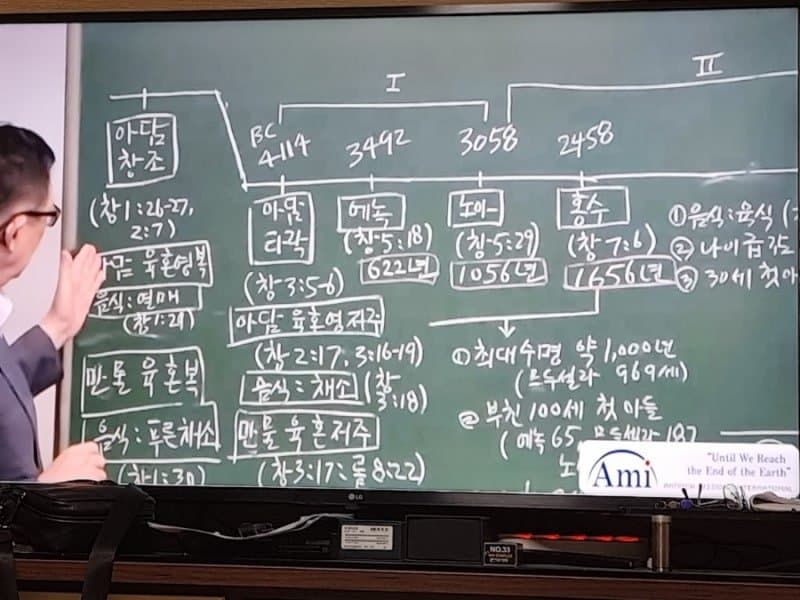 I
II
BC
4114
3492
3058
2458
아담
창조
(창1:26-27,
2:7)
아담 육혼영복
음식:열매
(창1:29)
만물육혼복
음식:푸른채소
(창1:30)
아담
타락
(창3:5-6)
아담 육혼영저주
(창2:17, 3:16-19)
음식:채소 (창
3:18)
만물육혼저주
(창3:17:롬8:22)
에녹
(창5:18)
622년
노아
(창5:29)
1056년
홍수
(창7:6)
1656년
① 최대수명 약 1,000년
(므두셀라 969세)
② 부친 100세 첫아들
(에녹65, 므두셀라 187
노
① 음식:육식 (
② 나이급감
③ 30세 첫아
Ami
"Until We Reach
the End of the Earth"
LG
NO.33